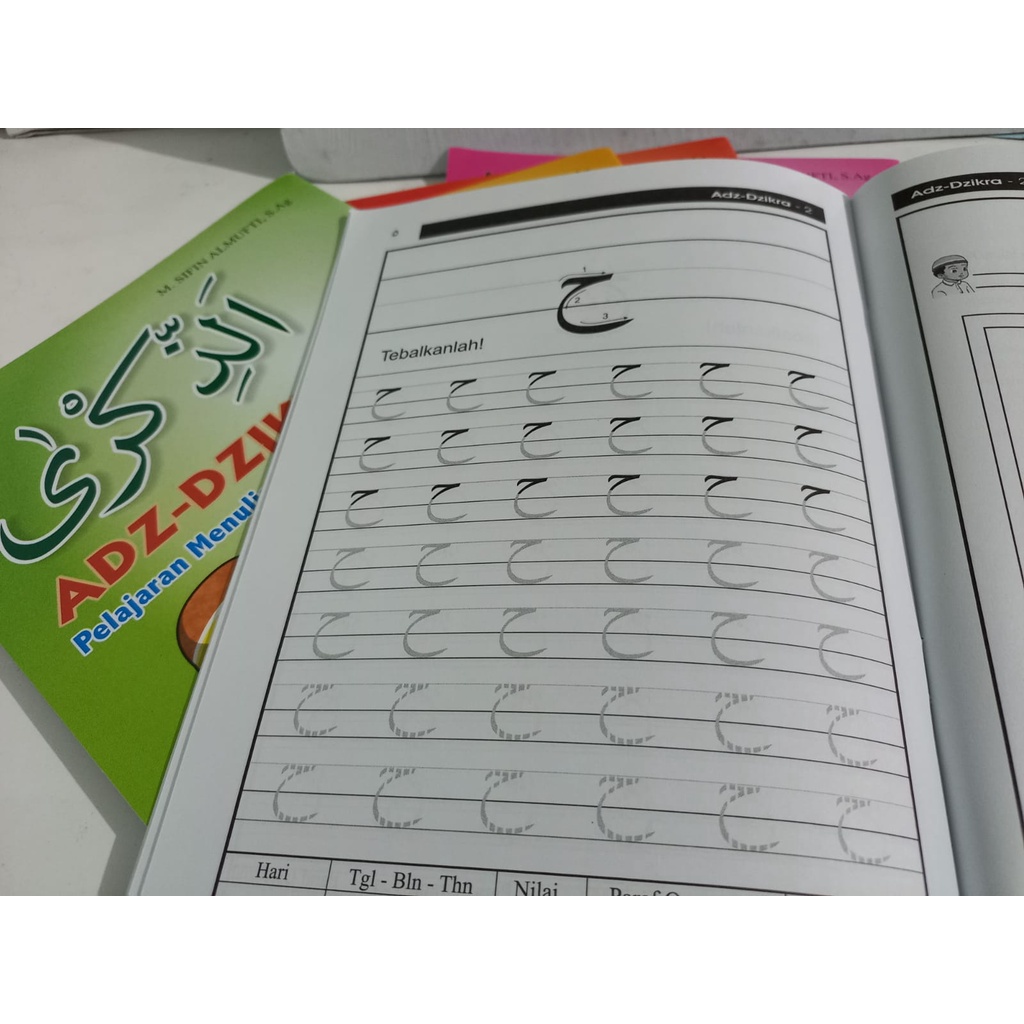 M. SIFIN ALMUFTI, S.Ag
اَلذِّكْرَى
ADZ-DZIK
Pelajaran Menuli
FTI, S.Ag
Adz-Dzikra - 2
٥
1
ح
2
3
Tebalkanlah!
ح ح ح ح ح ح
ح ح ح ح ح ح
ح ح ح ح ح ح
ح ح ح ح ح ح
ح ح ح ح ح ح
ح ح ح ح ح ح
ح ح ح ح ح ح
Hari Tgl - Bln - Thn Nilai Paraf O
Adz-Dzikra - 2